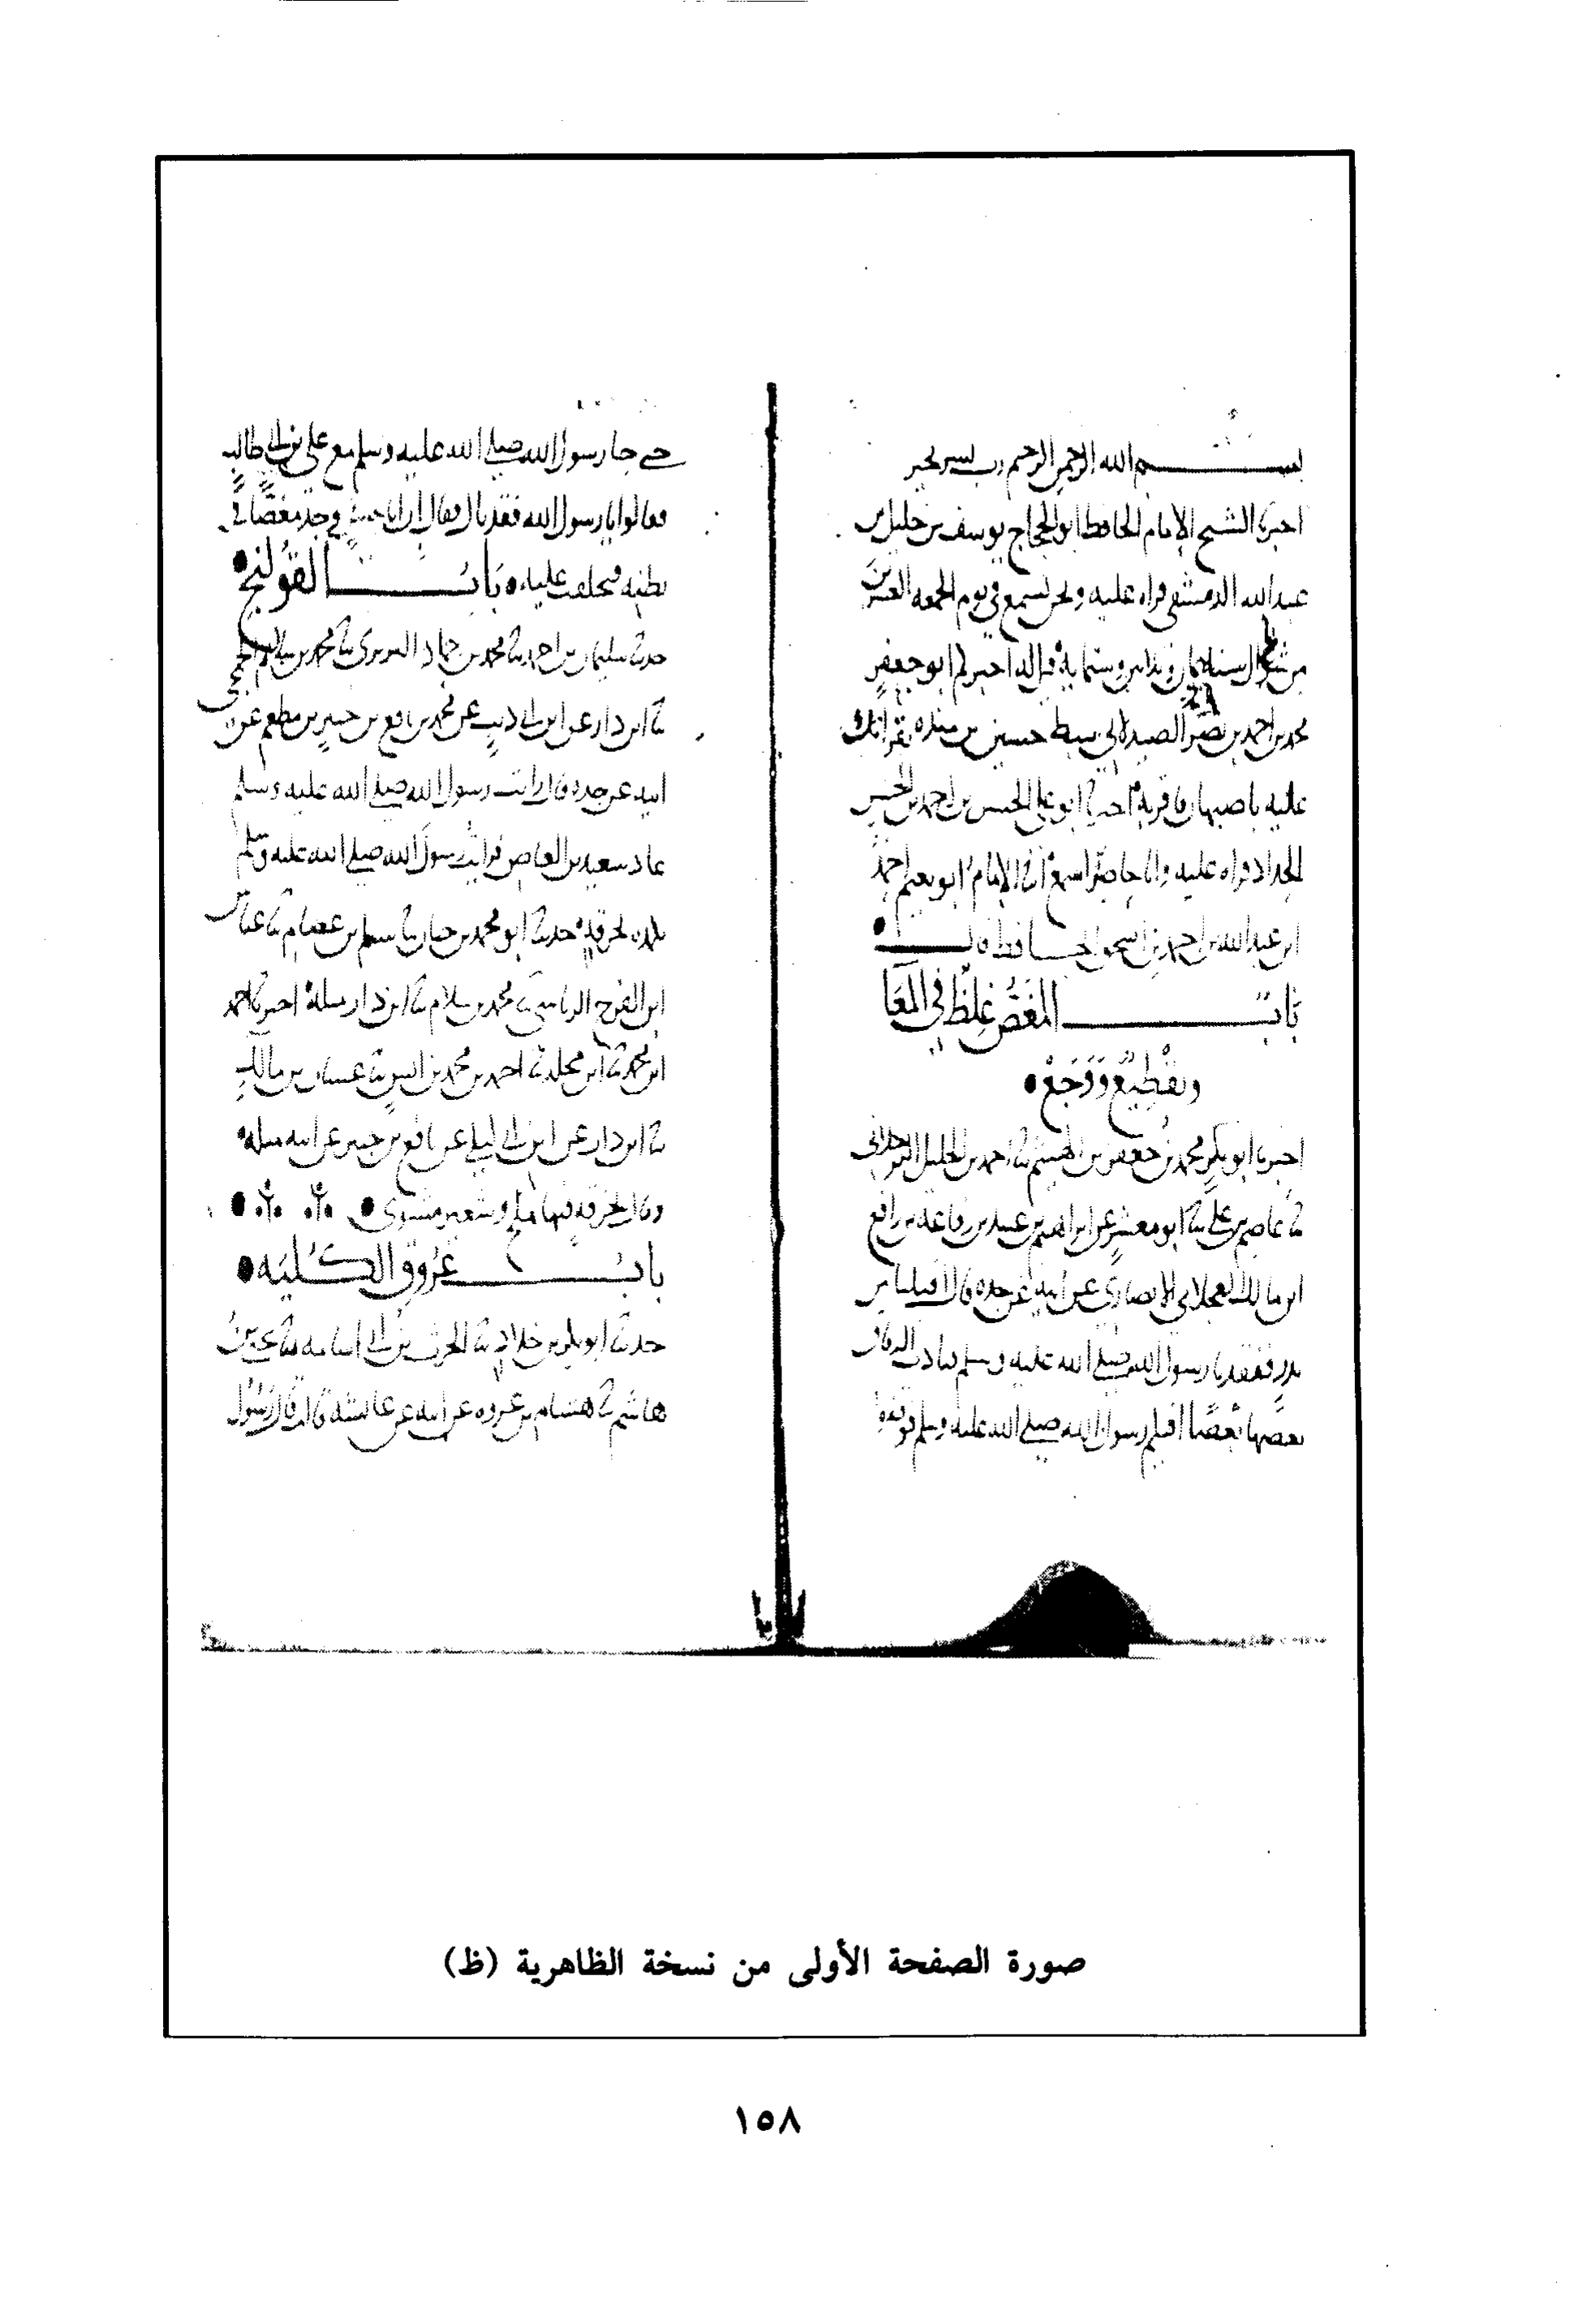 بسم الله الرحمن الرحيم رب يسر بخير
اخبرنا الشيخ الامام الحافظ ابو الحجاج يوسف بن خليل بن
عبد الله الدمشقي قراه عليه ونحن نسمع في يوم الجمعه العشرين
من شوال سنه ثمان وثلاثين وستمايه قيل له اخبركم ابو جعفر
محمد بن احمد بن نصر الصيدلاني سبط حسين بن منده بقراتك
عليه باصبهان فاقر به اخبرنا ابو علي الحسن بن احمد بن الحسن
الحداد قراه عليه وانا حاضر اسمع انا الامام ابو نعيم احمد
ابن عبد الله بن احمد بن اسحق الحافظ
باب المغص غلظ في المعا
وتقطيع ووجع
اخبرنا ابو بكر محمد بن جعفر بن الهيثم ثنا احمد بن الخليل البرجلاني
ثنا عاصم بن علي ثنا ابو معشر عن ابراهيم بن عبيد بن رفاعة بن رافع
ابن مالك العجلاني الانصاري عن ابيه عن جده قال اقبلنا من
بدر ففقدنا رسول الله صلى الله عليه وسلم فنادت الرفاق
بعضها بعضا افيكم رسول الله صلى الله عليه وسلم فوقفوا
حتى جا رسول الله صلى الله عليه وسلم مع علي بن ابي طالب
فقالوا يا رسول الله فقدناك فقال ان ابا حسن وجد مغصا في
بطنه فتخلفت عليه باب القولنج
حدثنا سليمان بن احمد ثنا محمد بن حماد ثنا محمد بن سلام الجمحي
ثنا ابن داب عن ابن ابي ذيب عن محمد بن نافع بن جبير بن مطعم عن
ابيه عن جده قال رايت رسول الله صلى الله عليه وسلم
عاد سعيد بن العاص فرايت رسول الله صلى الله عليه وسلم
يكمده بخرقة حدثنا ابو محمد بن حيان ثنا سلم بن عصام ثنا عباس
ابن الفرج الرياشي ثنا محمد بن سلام ثنا ابن داب مثله اخبرنا احمد
ابن محمد ثنا ابن مخلد ثنا احمد بن محمد بن انس ثنا غسان بن مالك
ثنا ابن داب عن ابن ابي ليلى عن نافع بن جبير عن ابيه مثله
وقال بخرقه فيها ملح وشعير مشوي
باب عروق الكليه
حدثنا ابو بكر بن خلاد ثنا الحرث بن ابي اسامه ثنا يحيى بن
هاشم ثنا هشام بن عروه عن ابيه عن عائشه قالت قال رسول
صورة الصفحة الأولى من نسخة الظاهرية (ظ)
١٥٨